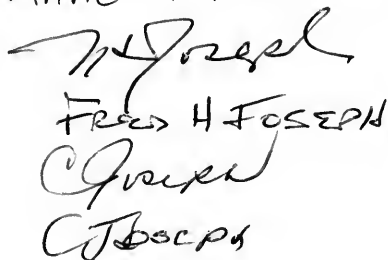 Joseph
Fred H Joseph
C Joseph
C Joseph